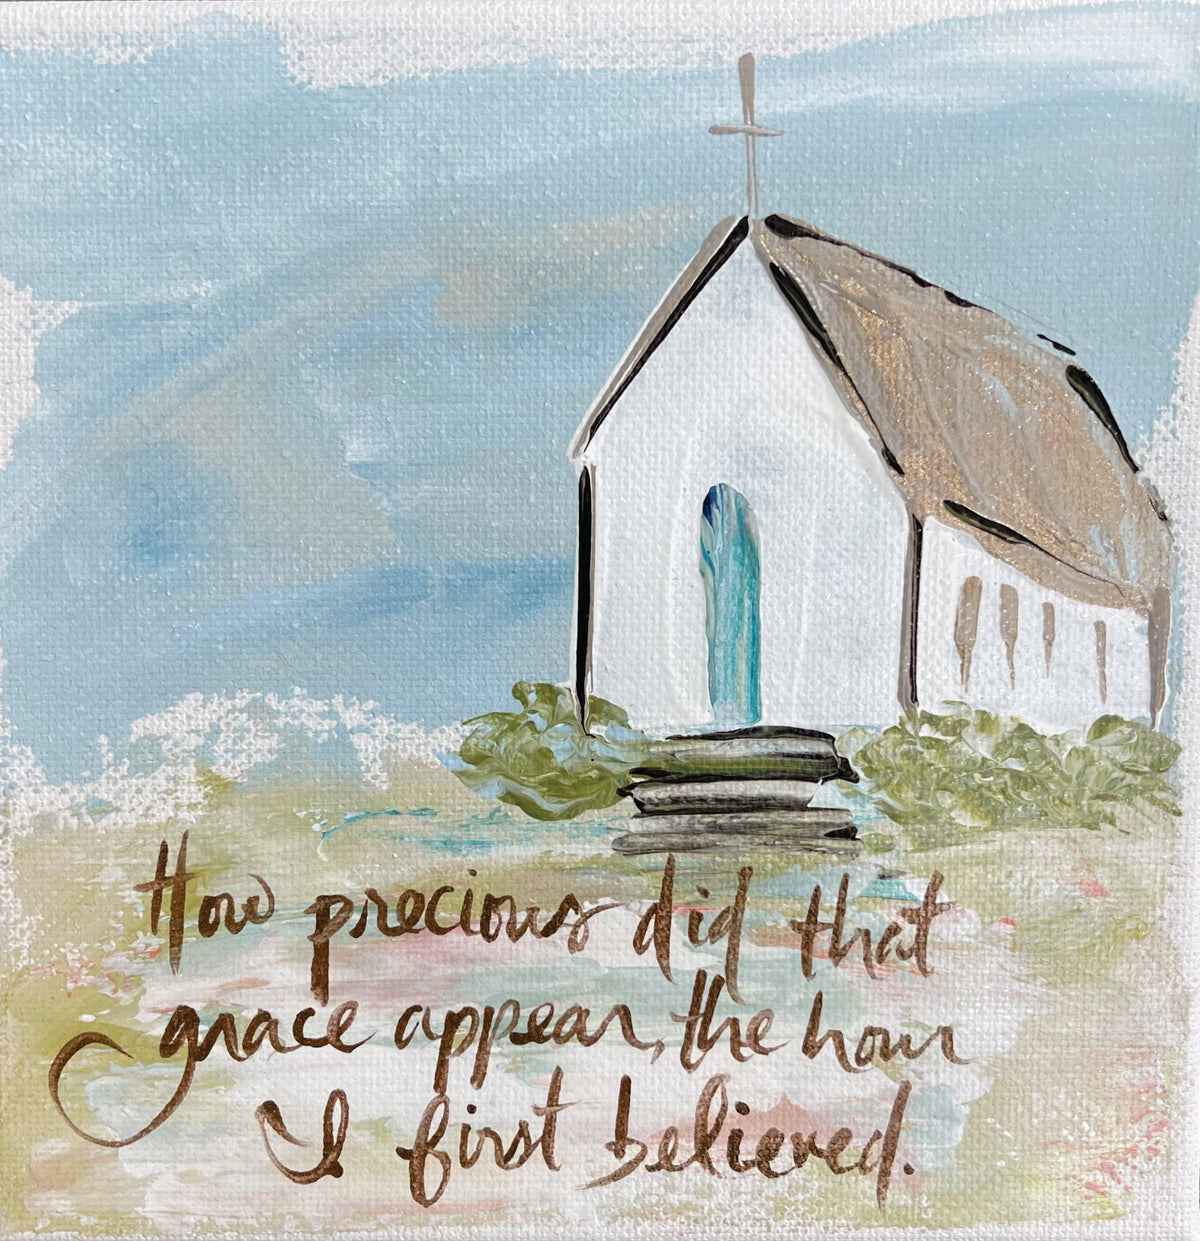 How precious did that
grace appear, the hour
I first believed.